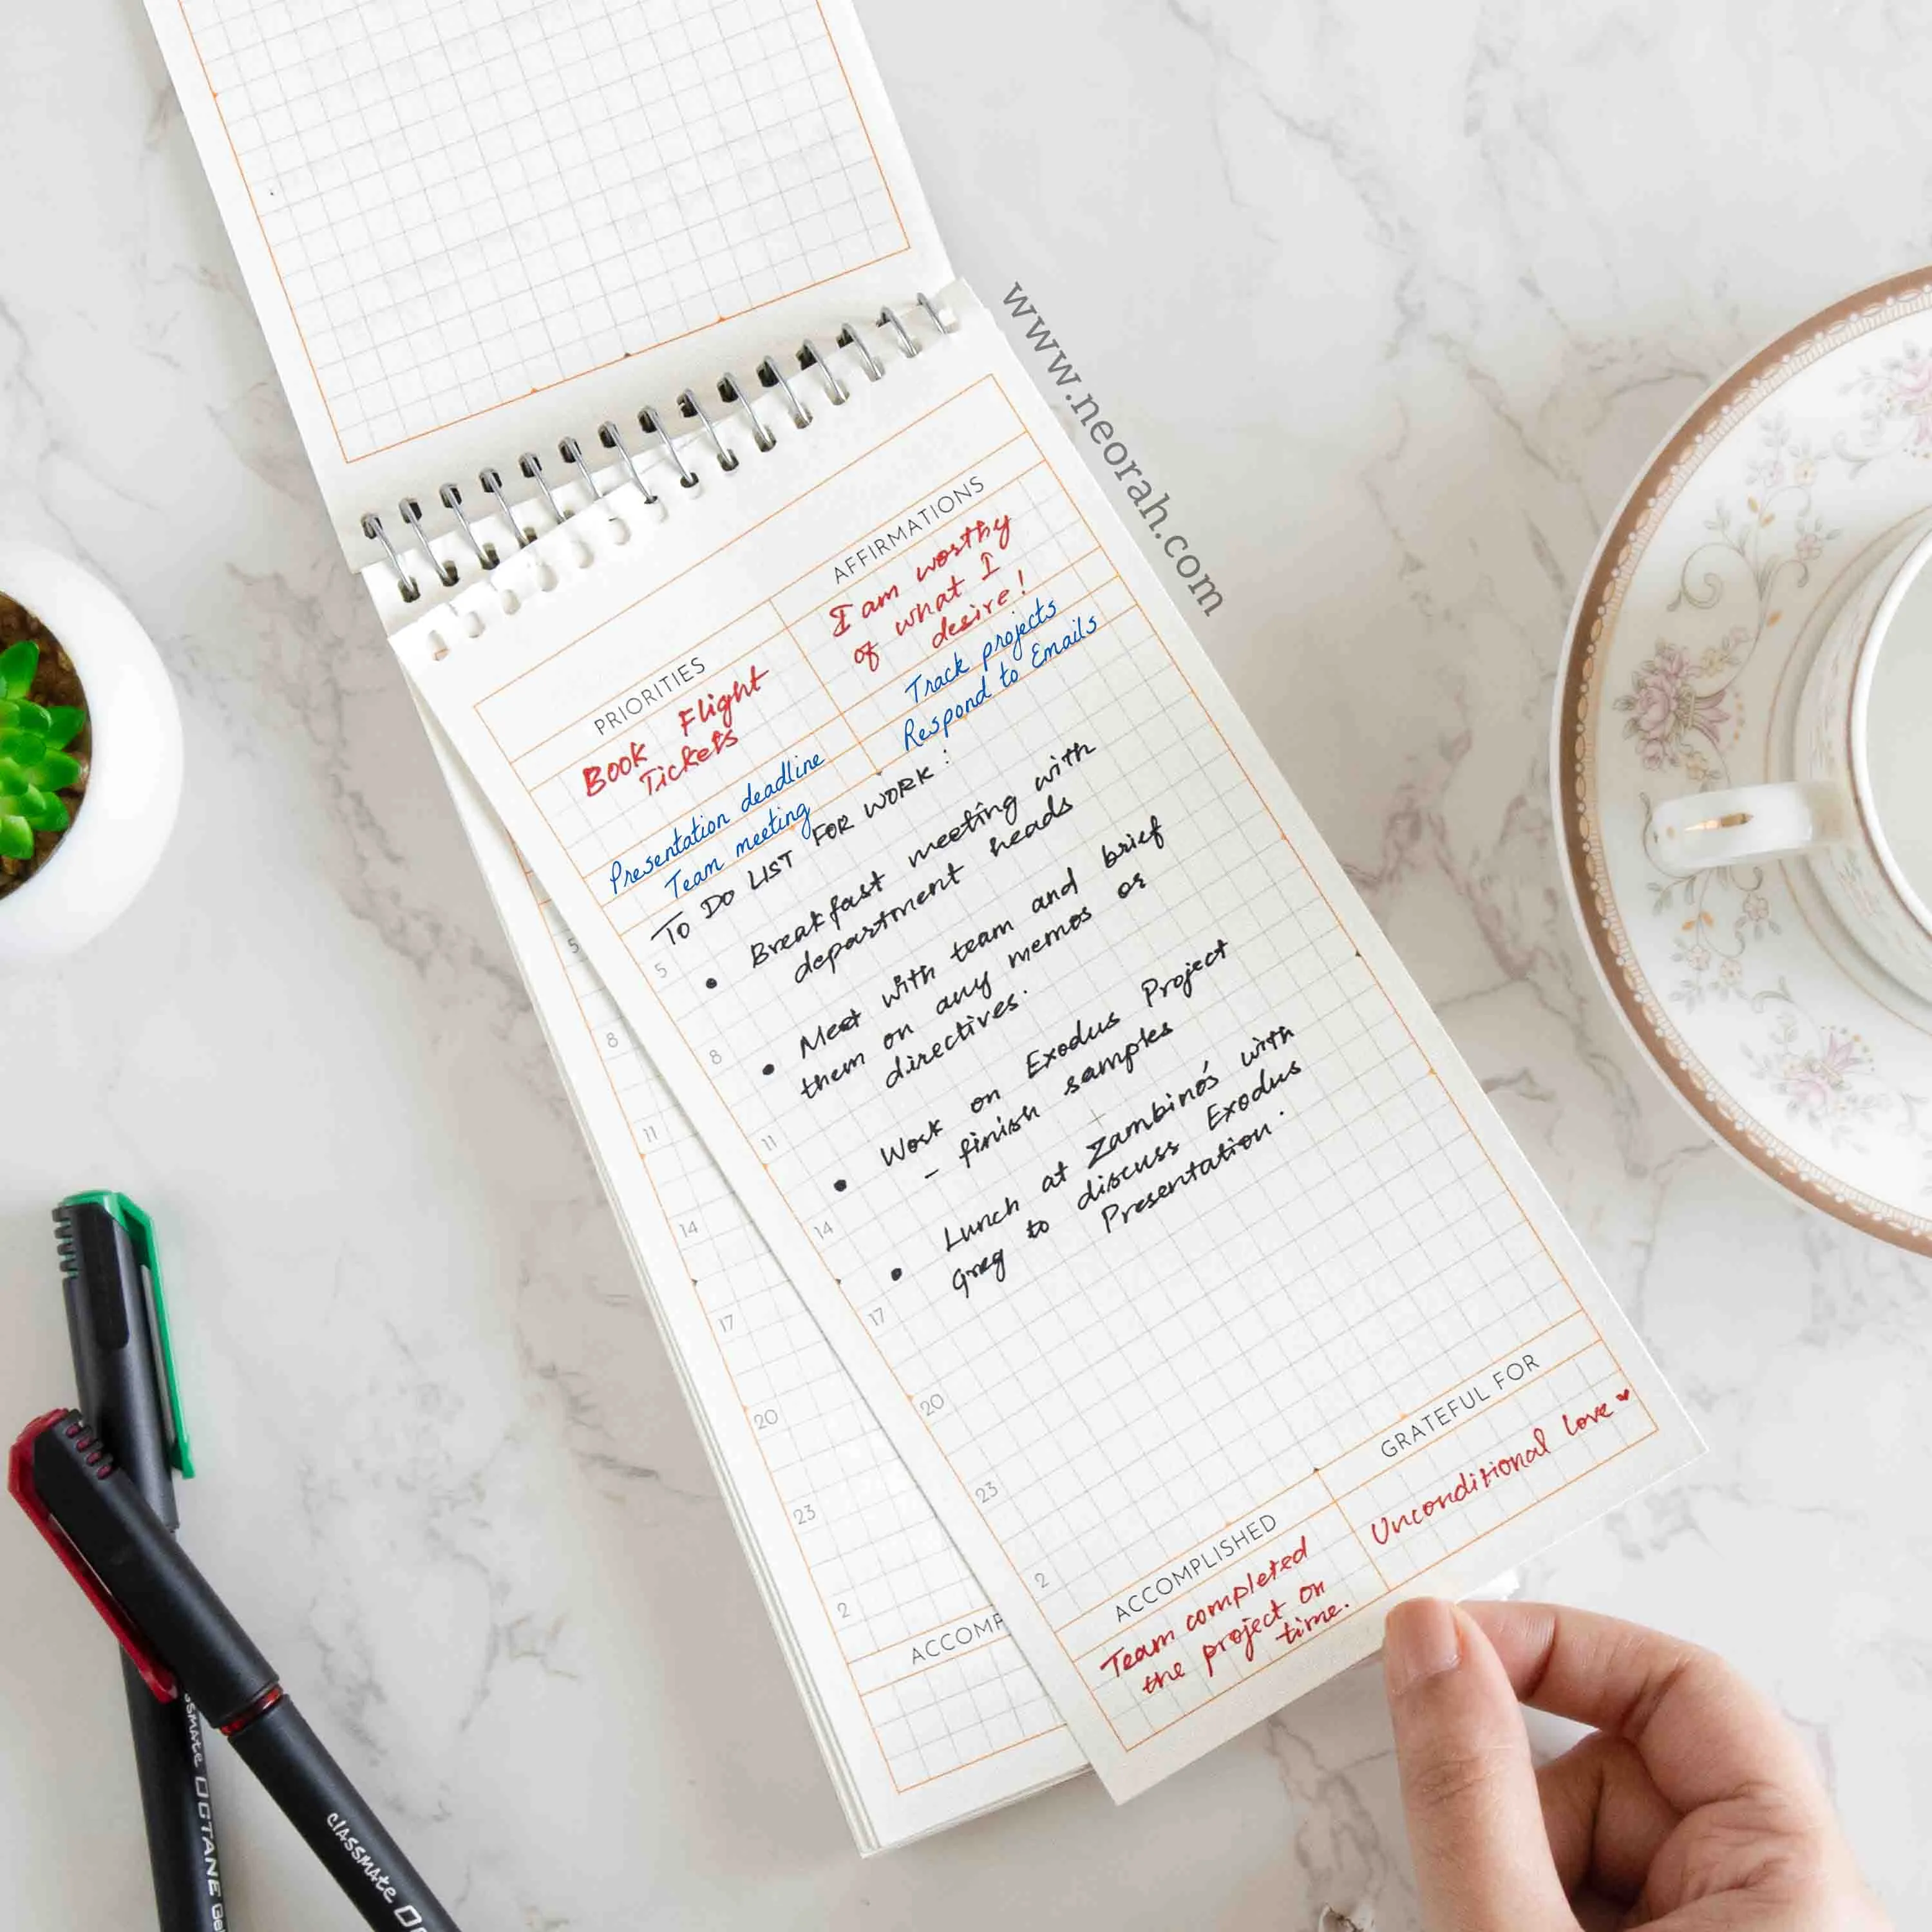 www.neorah.com
PRIORITIES
AFFIRMATIONS
Book Flight
Tickets
I am worthy
of what I
desire!
Presentation deadline
Team meeting
Track projects
Respond to Emails
To Do LIST FOR WORK :
• Breakfast meeting with
department heads
• Meet with team and brief
them on any memos or
directives.
• Work on Exodus Project
- finish samples
• Lunch at Zambino's with
Greg to discuss Exodus
Presentation.
5
8
11
14
17
20
23
2
ACCOMPLISHED
GRATEFUL FOR
Team completed
the project on
time.
Unconditional love ♥
5
8
11
14
17
20
23
2
ACCOMP
classmate OCTANE Gel
classmate Oc